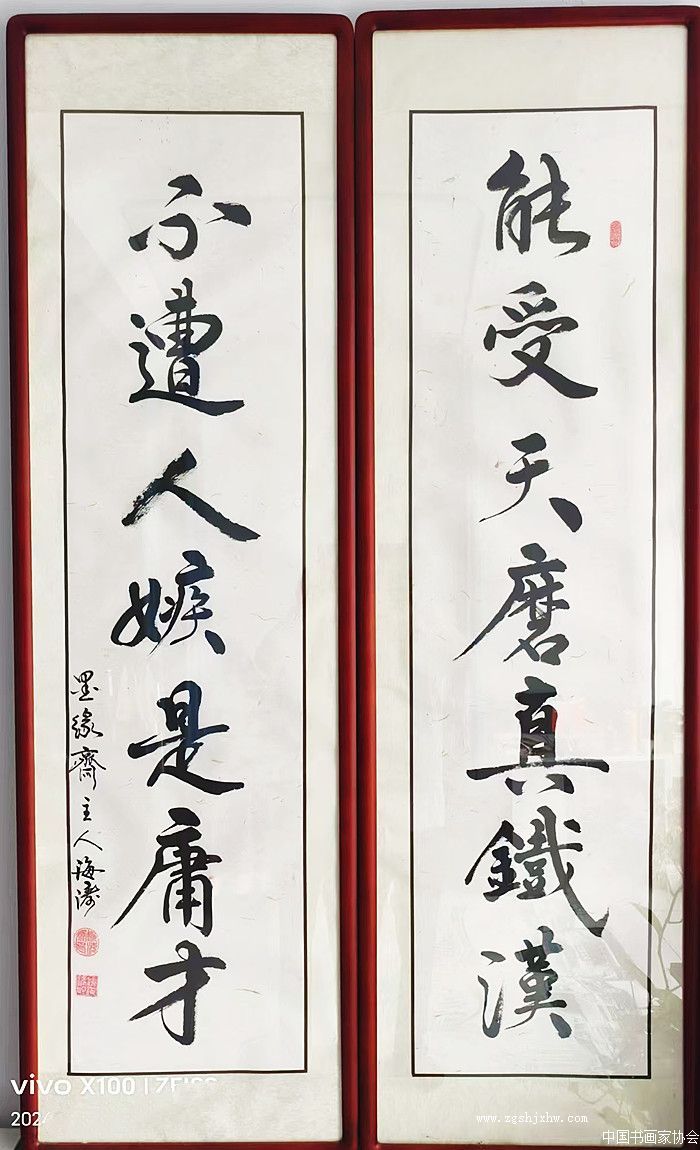 能受天磨真鐵漢
不遭人嫉是庸才
墨緣齋主人海濤
vivo X100 | ZEISS
202
www.zgshjxhw.com
中国书画家协会